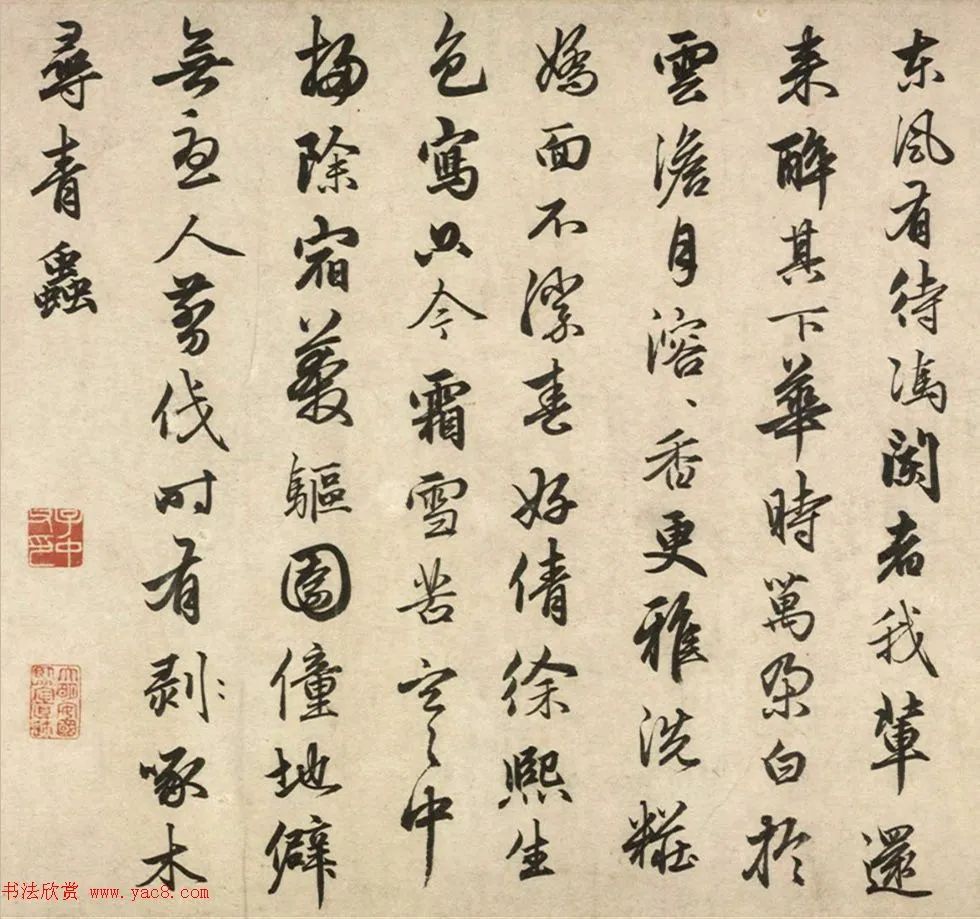 东风有待濤閡者我輩還
来醉其下華時萬朶白於
雲澹月溶、香更雅洗糚
嬌面不潔春好倩徐熙生
色寫只今霜雪苦空之中
掃除宿蔓驅園僮地僻
無恐人剪伐时有剥ミ啄木
尋青蟲
子中
书法欣赏 www.yac8.com